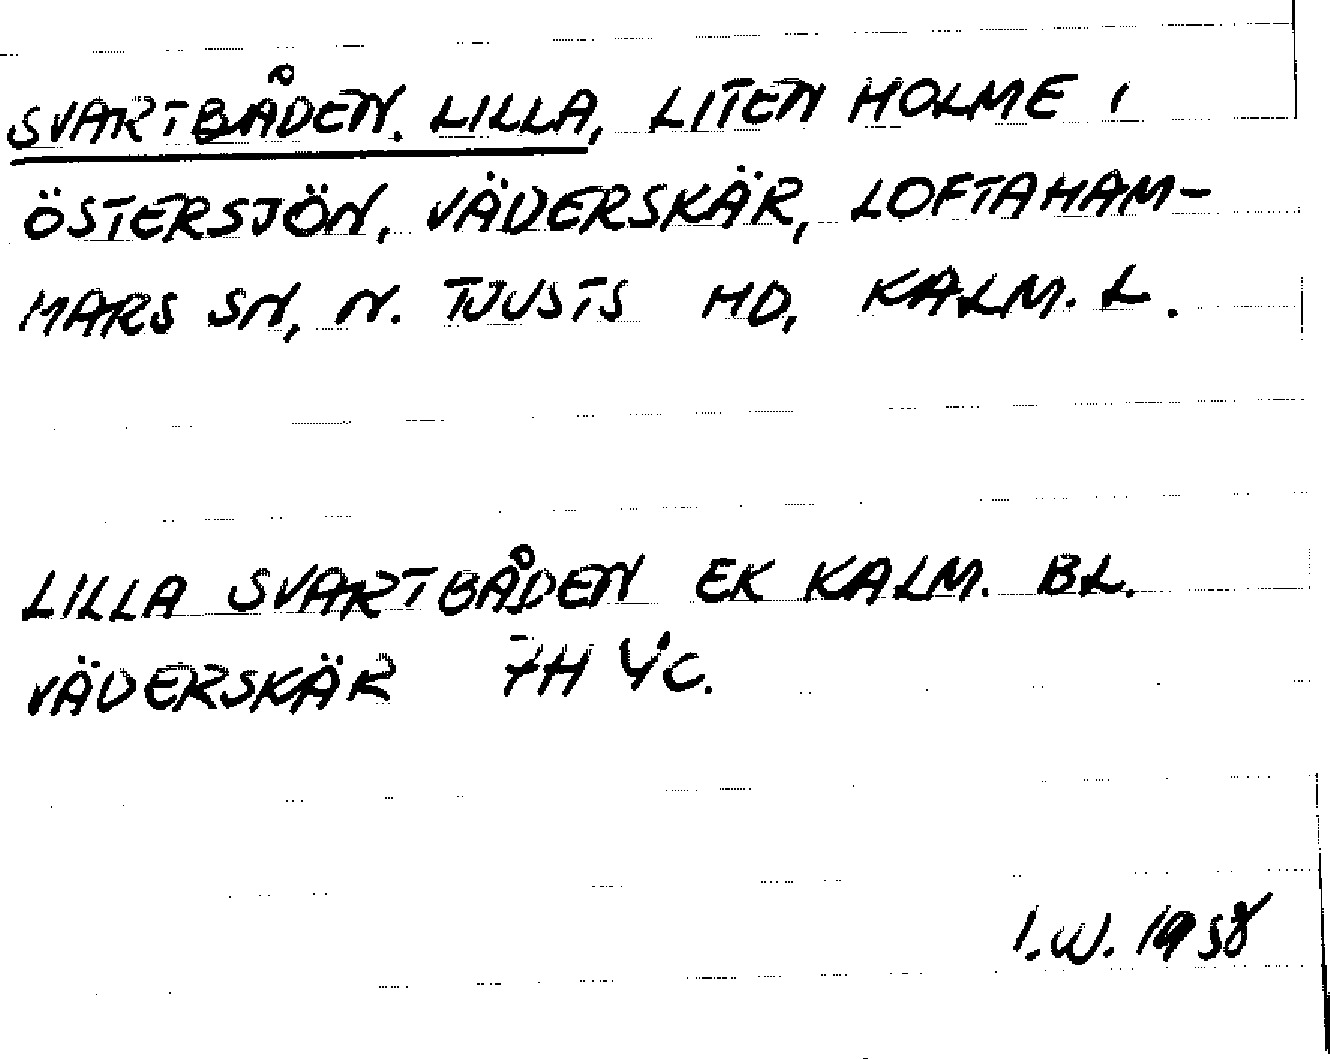 SVARTBÅDEN. LILLA, LITEN HOLME I
ÖSTERSJÖN, VÄDERSKÄR, LOFTAHAM-
MARS SN, N. TJUSTS HD, KALM. L.
LILLA SVARTBÅDEN EK KALM. BL.
VÄDERSKÄR 7H 4c.
I.W. 1958